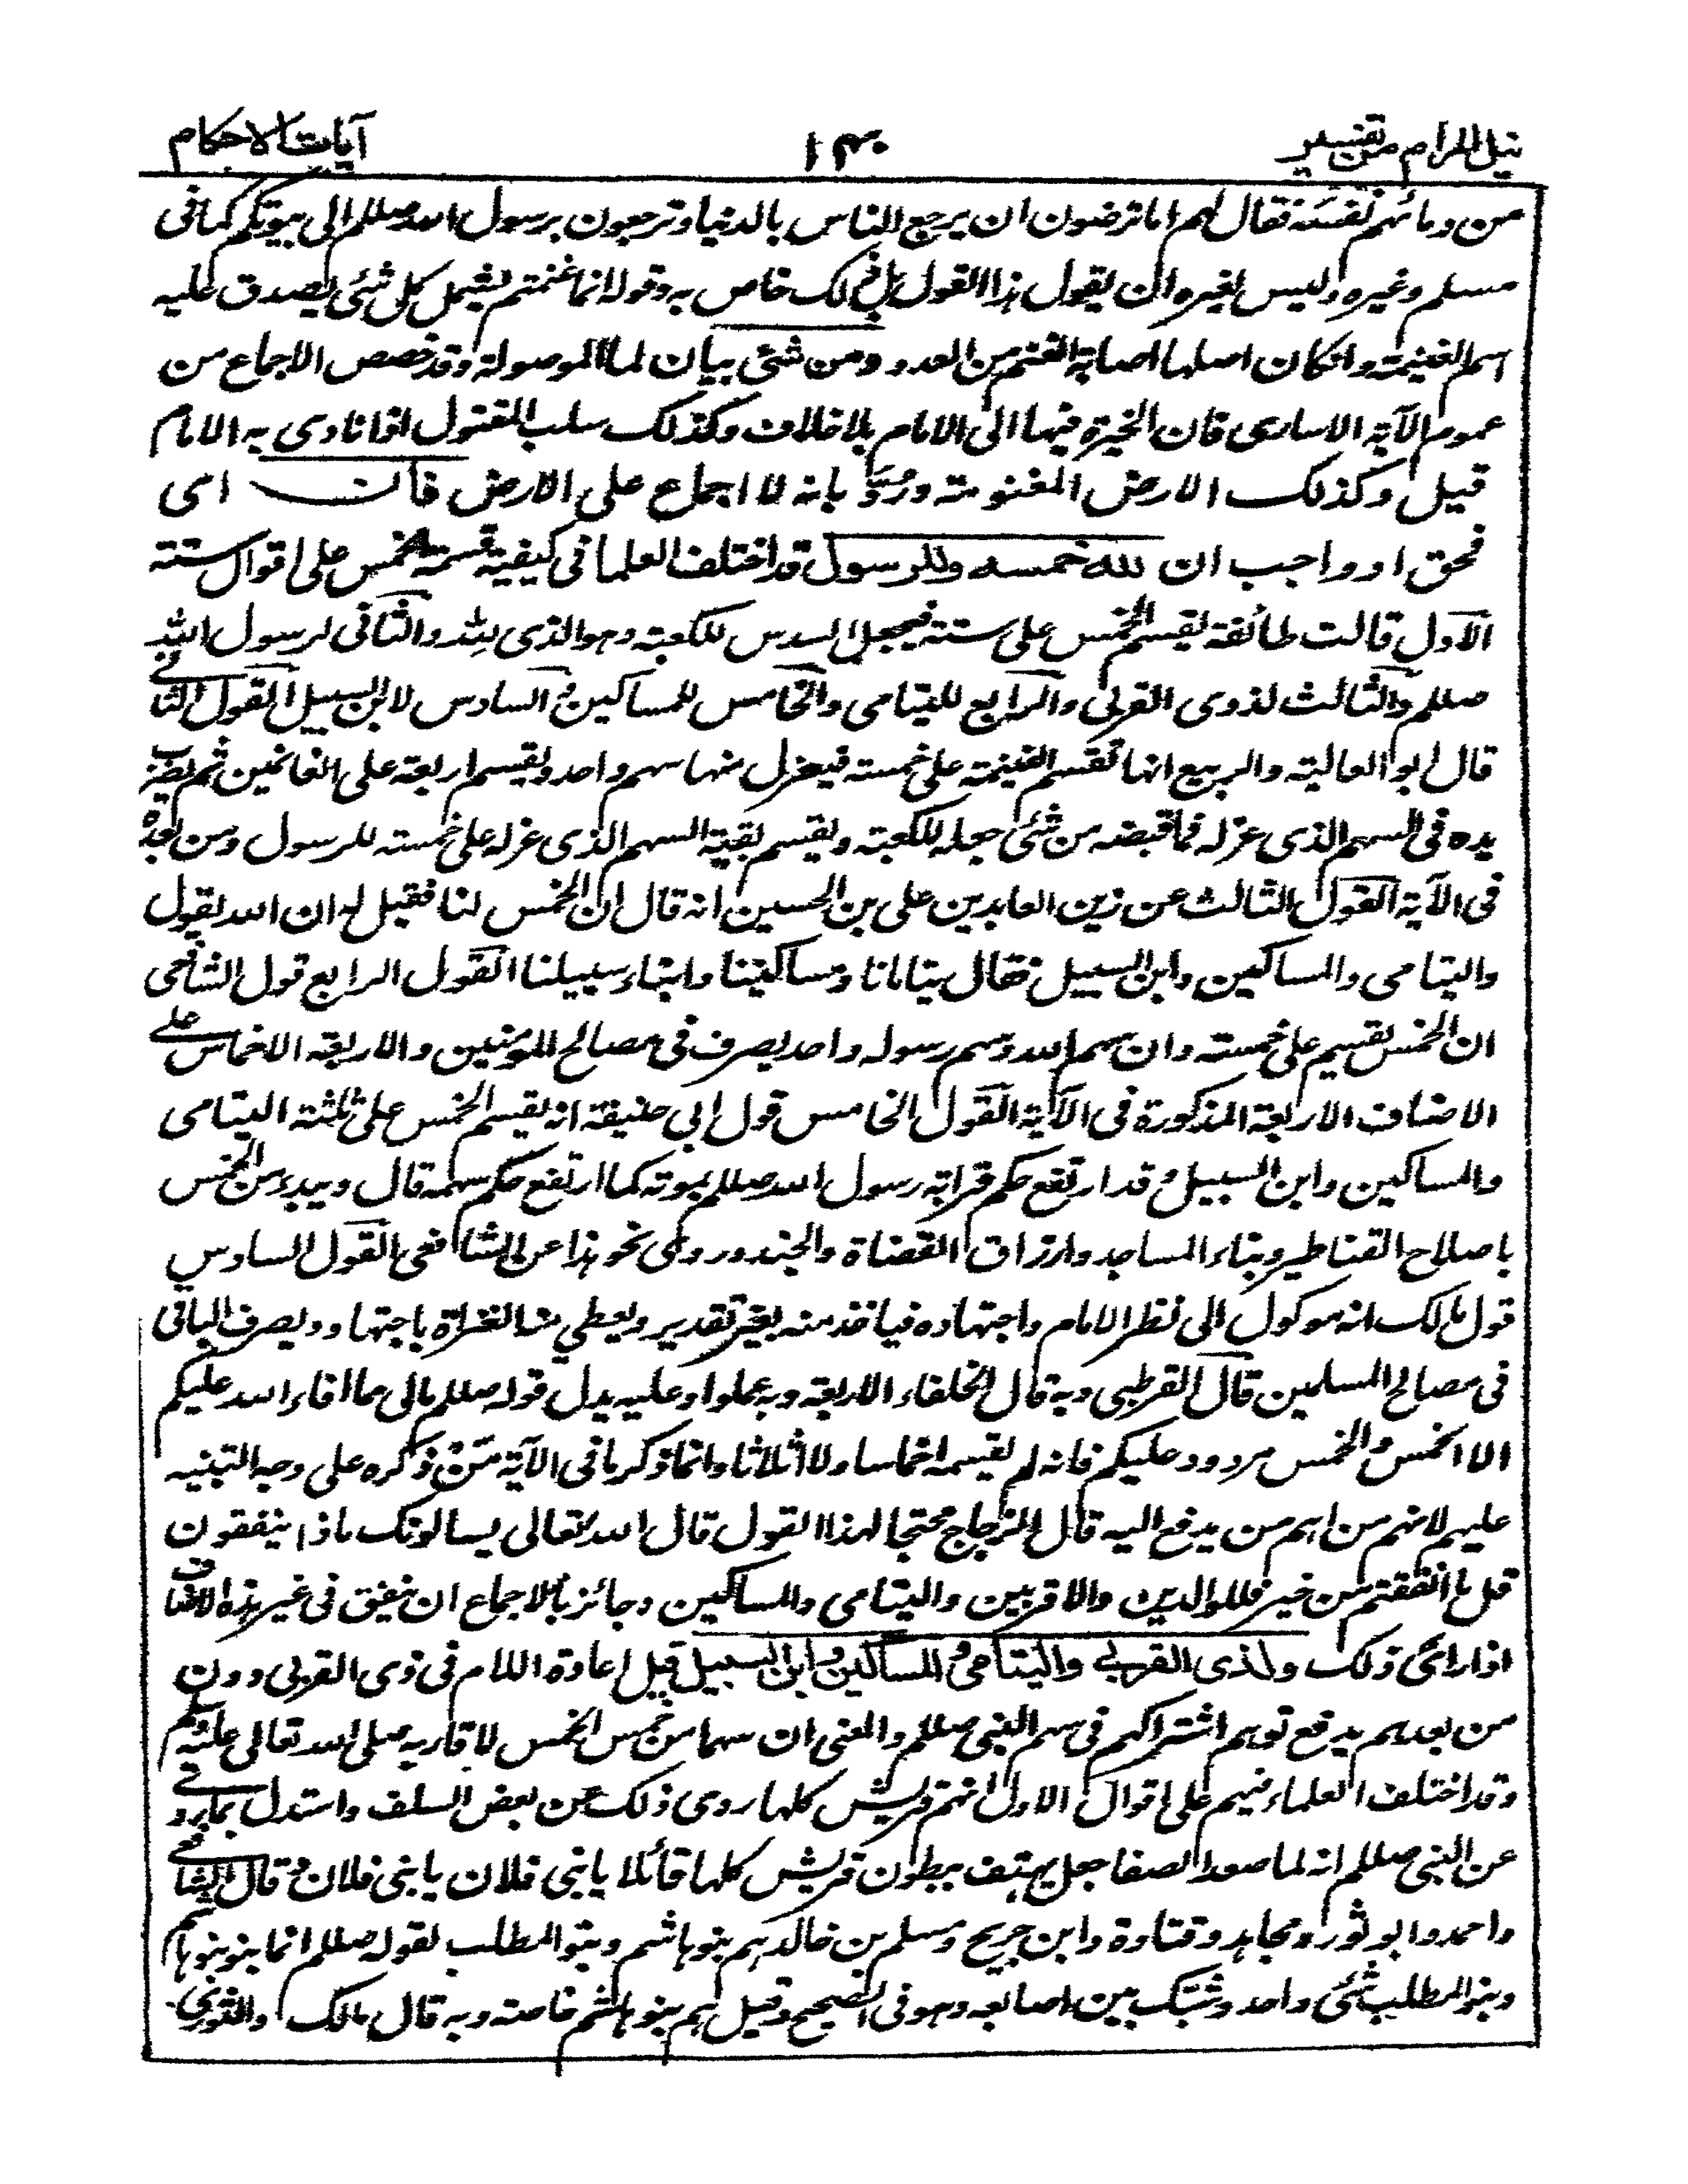 نيل المرام من تفسير
١٤٠
آيات الاحكام
من دمائهم نفسه فقال لهم اما ترضون ان يرجع الناس بالدنيا وترجعون برسول الله صللم الى بيوتكم كما فى
مسلم وغيره وليس لغيره ان يقول هذا القول بل ذلك خاص به وقوله انما غنمتم يشمل كل شئ يصدق عليه
اسم الغنيمة وانكان اصلها اصابة الغنم من العدو ومن شئ بيان لما الموصولة وقد خصص الاجماع من
عموم الآية الاسارى فان الخيرة فيها الى الامام بلا خلاف وكذلك سلب المقتول اذا نادى به الامام
قيل وكذلك الارض المغنومة ورُدَّ بانه لا اجماع على الارض فان اى
فحق او واجب ان لله خمسه وللرسول قد اختلف العلما فى كيفية قسمة الخمس على اقوال ستة
الاول قالت طائفة يقسم الخمس على ستة فيجعل السدس للكعبة وهو الذى لله والثانى لرسول الله
صللم والثالث لذوى القربى والرابع لليتامى والخامس للمساكين والسادس لابن السبيل القول الثانى
قال ابو العالية والربيع انها تقسم الغنيمة على خمسة فيعزل منها سهم واحد ويقسم اربعة على الغانمين ثم يضرب
يده فى السهم الذى عزله فما قبضه من شئ جعله للكعبة ويقسم بقية السهم الذى عزله على خمسة للرسول ومن بعده
فى الآية القول الثالث عن زين العابدين على بن الحسين انه قال ان الخمس لنا فقيل له ان الله يقول
واليتامى والمساكين وابن السبيل فقال يتامانا ومساكيننا وابناء سبيلنا القول الرابع قول الشافعى
ان الخمس يقسم على خمسة وان سهم الله وسهم رسوله واحد يصرف فى مصالح المؤمنين والاربعة الاخماس على
الاصناف الاربعة المذكورة فى الآية القول الخامس قول ابى حنيفة انه يقسم الخمس على ثلثة اليتامى
والمساكين وابن السبيل وقد ارتفع حكم قرابة رسول الله صللم بموته كما ارتفع حكم سهمه قال ويبدء من الخمس
باصلاح القناطير وبناء المساجد وارزاق القضاة والجند وروى نحو هذا عن الشافعى القول السادس
قول مالك انه موكول الى نظر الامام واجتهاده فياخذ منه بغير تقدير ويعطي منه الغزاة باجتهاد ويصرف الباقى
فى مصالح المسلمين قال القرطبى وبه قال الخلفاء الاربعة وبه عملوا وعليه يدل قوله صللم مالى مما افاء الله عليكم
الا الخمس والخمس مردود عليكم فانه لم يقسمه اخماسا ولا اثلاثا وانما ذكر ما فى الآية مَنْ ذكره على وجه التنبيه
عليهم لانهم من اهم من يدفع اليه قال الزجاج محتجا لهذا القول قال الله تعالى يسالونك ماذا ينفقون
قل ما انفقتم من خير فللوالدين والاقربين واليتامى والمساكين وجائز بالاجماع ان ينفق فى غير هذه الاصناف
اذا رائ ذلك ولذى القربى واليتامى والمساكين وابن السبيل قيل اعادة اللام فى ذى القربى دون
من بعدهم يدفع توهم اشتراكهم فى سهم النبى صللم والمعنى ان سهما من خمس الخمس لاقاربه صلى الله تعالى عليه وسلم
وقد اختلف العلماء فيهم على اقوال الاول انهم قريش كلها روى ذلك عن بعض السلف واستدل بما روى
عن النبى صللم انه لما صعد الصفا جعل يهتف ببطون قريش كلها قائلا يا بنى فلان يا بنى فلان وقال الشافعى
واحمد وابو ثور ومجاهد وقتادة وابن جريج ومسلم بن خالد هم بنو هاشم وبنو المطلب لقوله صللم انما بنو هاشم
وبنو المطلب شئ واحد وشبّك بين اصابعه وهو فى الصحيح وقيل هم بنو هاشم خاصة وبه قال مالك والثورى